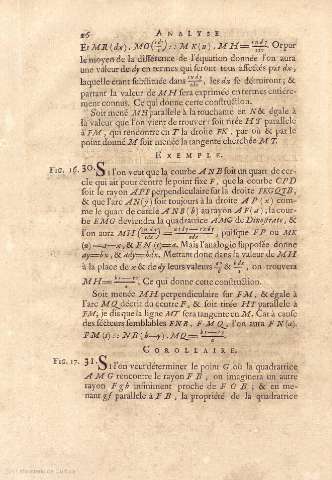 26 ANALYSE
Et MR (dx). MO :: MK (u). MH = . Or par
le moyen de la différence de l'équation donnée l'on aura
une valeur de dy en termes qui seront tous affectés par dx,
laquelle étant substituée dans , les dx se détruiront; &
partant la valeur de MH sera exprimée en termes entière-
ment connus. Ce qui donne cette construction.
Soit mené MH parallele à la touchante en N & égale à
la valeur que l'on vient de trouver: soit tirée HT parallele
à FM, qui rencontre en T la droite FK, par où & par le
point donné M soit menée la tangente cherchée MT.
EXEMPLE.
FIG. 16. 30. SI l'on veut que la courbe ANB soit un quart de cer-
cle qui ait pour centre le point fixe F, que la courbe CPD
soit le rayon API perpendiculaire sur la droite FKGQTB,
& que l'arc AN (y) soit toujours à la droite AP (x) com-
me le quart de cercle ANB (b) au rayon AF (a), la cour-
be EMG deviendra la quadratrice AMG de Dinostrate, &
l'on aura MH , puisque FP ou MK
(u) = a—x, & FN (t) = a. Mais l'analogie supposée donne
ay=bx, & ady=bdx. Mettant donc dans la valeur de MH
à la place de x & de dy leurs valeurs & , on trouvera
MH = . Ce qui donne cette construction.
Soit menée MH perpendiculaire sur FM, & égale à
l'arc MQ décrit du centre F, & soit tirée HT parallele à
FM, je dis que la ligne MT sera tangente en M. Car à cause
des secteurs semblables FNB, FMQ, l'on aura FN (a).
FM (s) :: NB (b—y). MQ = .
COROLLAIRE.
FIG. 17. 31. SI l'on veut déterminer le point G où la quadratrice
AMG rencontre le rayon FB, on imaginera un autre
rayon Fgb infiniment proche de FGB; & en me-
nant gf parallele à FB, la propriété de la quadratrice